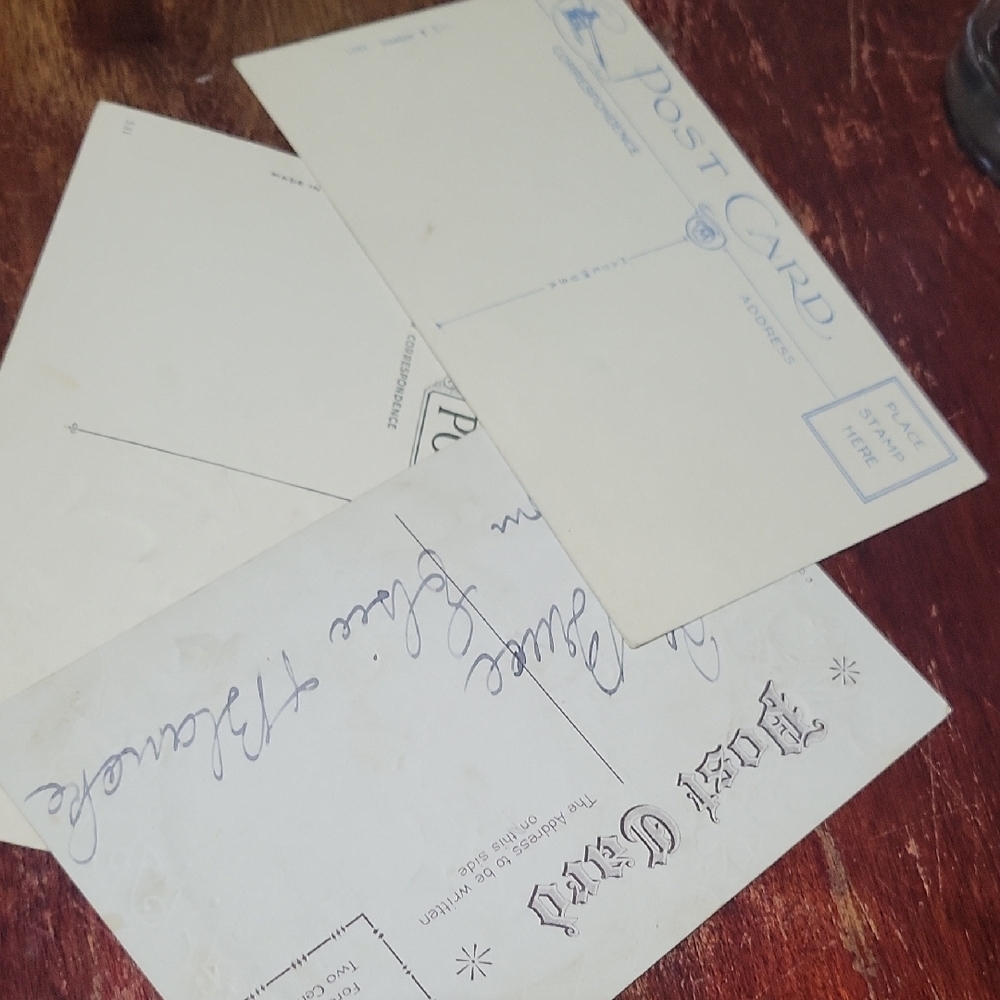 POST CARD
CORRESPONDENCE
ADDRESS
PLACE
STAMP
HERE
MADE IN
CORRESPONDENCE
PO
Post Card
The Address to be written
on this side
Two Cen
To
Bruce
from
Elsie & Blanche